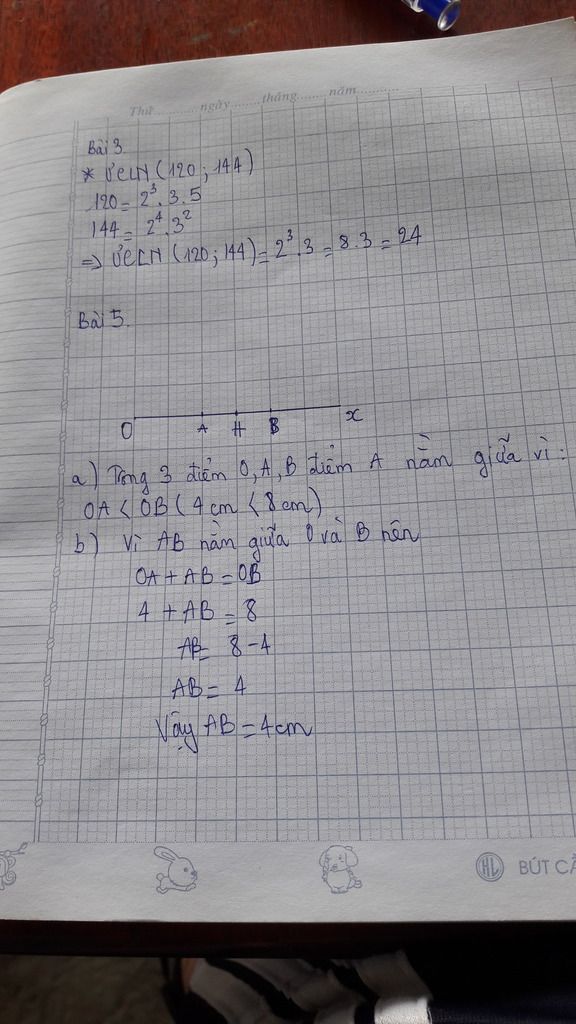 Thứ.........ngày.........tháng.........năm.........
Bài 3.
* ƯCLN (120 ; 144)
120 = 2³. 3. 5
144 = 2⁴. 3²
=> ƯCLN (120; 144) = 2³. 3 = 8. 3 = 24
Bài 5.
O A H B x
a) Trong 3 điểm O, A, B điểm A nằm giữa vì :
OA < OB ( 4 cm < 8 cm)
b) Vì AB nằm giữa O và B nên
OA + AB = OB
4 + AB = 8
AB = 8 - 4
AB = 4
Vậy AB = 4cm
HL BÚT